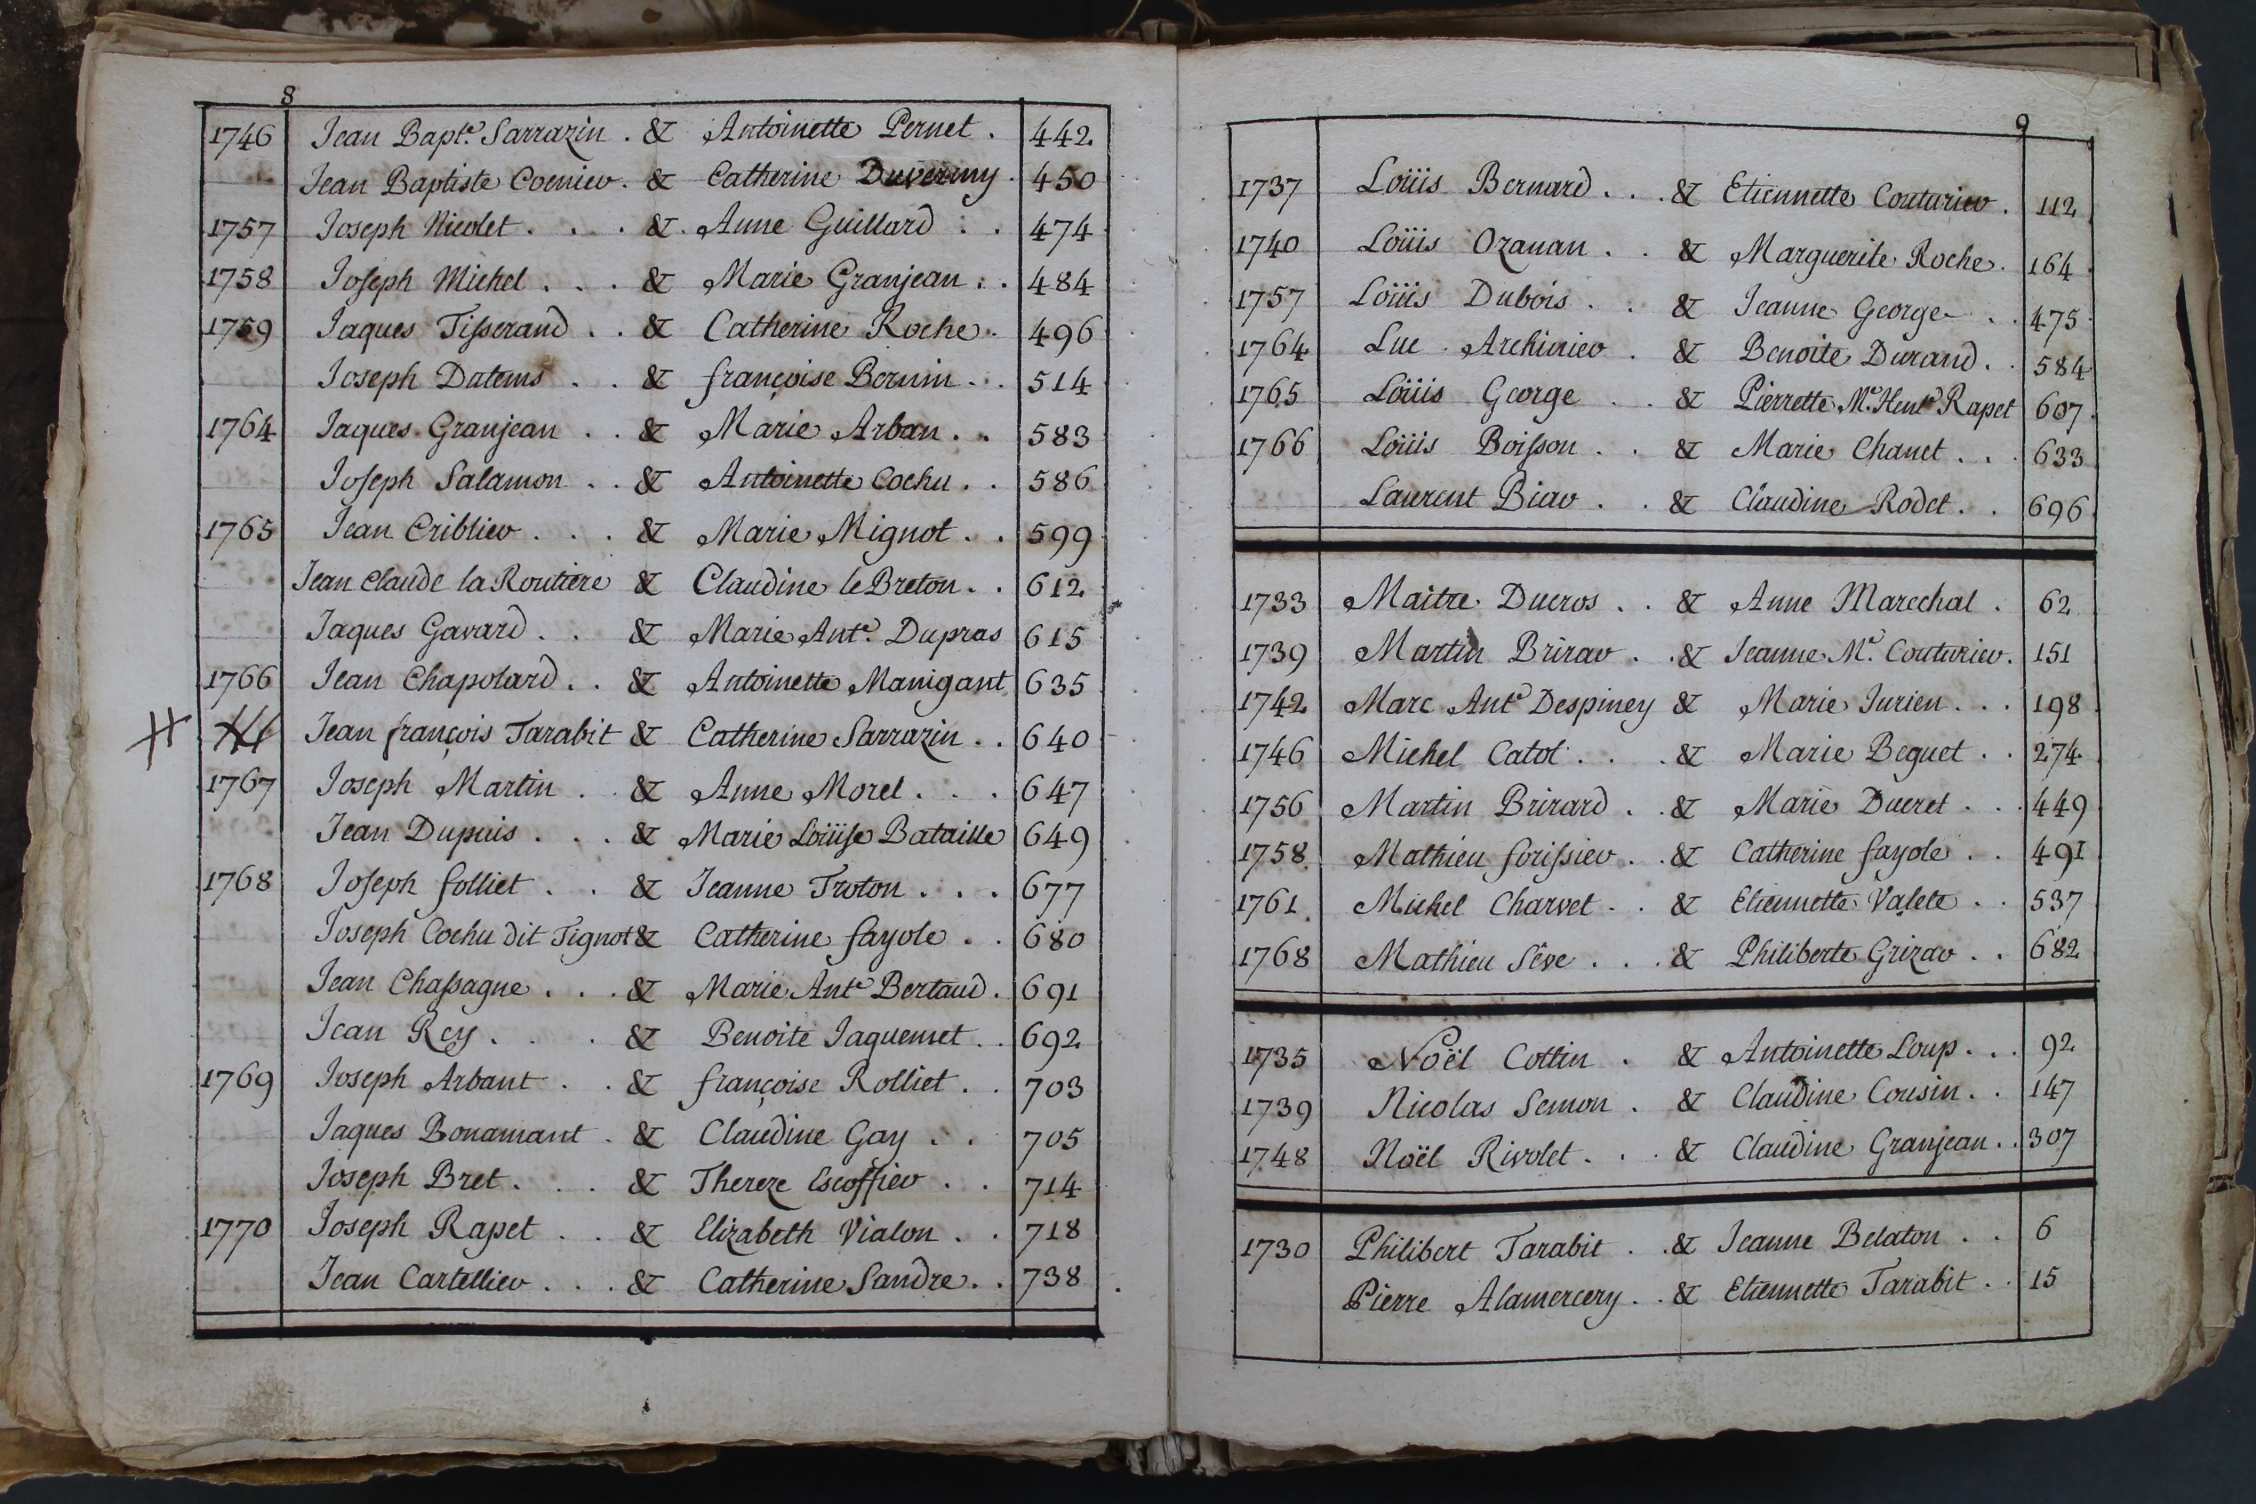 8
1746 Jean Bapt.e Sarrazin . & Antoinette Pernet . 442
Jean Baptiste Coenier . & Catherine Duverny . 450
1757 Joseph Nicolet . . . & . Anne Guillard . . 474
1758 Joseph Michel . . . & Marie Granjean . . 484
1759 Jaques Tisserand . . & Catherine Roche . 496
Joseph Datems . . & françoise Bernin . . 514
1764 Jaques Granjean . . & Marie Arban . . 583
Joseph Salamon . . & Antoinette Cochu . . 586
1765 Jean Criblier . . . & Marie Mignot . . 599
Jean Claude la Routiere & Claudine le Breton . . 612
Jaques Gavard . . & Marie Ant.e Dupras 615
1766 Jean Chapolard . . & Antoinette Manigant 635
Jean françois Tarabit & Catherine Sarrazin . . 640
1767 Joseph Martin . . & Anne Morel . . . 647
Jean Dupuis . . . & Marie Loüise Bataille 649
1768 Joseph folliet . . & Jeanne Troton . . . 677
Joseph Cochu dit Tignot & Catherine fayole . . 680
Jean Chassagne . . . & Marie Ant.e Bertaud . 691
Jean Rey . . . & Benoite Jaquemet . . 692
1769 Joseph Arbant . . & françoise Rolliet . . 703
Jaques Bonamant . & Claudine Gay . . 705
Joseph Bret . . . & Thereze Escoffier . . 714
1770 Joseph Rapet . . & Elizabeth Vialon . . 718
Jean Cartellier . . . & Catherine Sandre . . 738
9
1737 Loüis Bernard . . . & Etiennette Couturier . 112
1740 Loüis Ozanan . . & Marguerite Roche . 164
1757 Loüis Dubois . . & Jeanne George . . 475
1764 Luc Archinier . & Benoite Durand . . 584
1765 Loüis George . . & Pierrette M.e Hent.e Rapet 607
1766 Loüis Boisson . . & Marie Chanet . . . 633
Laurent Biar . . & Claudine Rodet . . 696
1733 Maitre Ducros . . & Anne Marechal . 62
1739 Martin Brirar . . & Jeanne M.e Couturier . 151
1742 Marc Ant.e Despiney & Marie Jurien . . . 198
1746 Michel Catot . . . & Marie Beguet . . 274
1756 Martin Brirard . . & Marie Ducret . . . 449
1758 Mathieu forissier . . & Catherine fayole . . 491
1761 Michel Charvet . . & Etiennette Valete . . 537
1768 Mathieu Sêve . . . & Philiberte Grizar . . 682
1735 Noël Cottin . & Antoinette Loup . . . 92
1739 Nicolas Semon . & Claudine Cousin . . 147
1748 Noël Rivolet . . . & Claudine Granjean . . 307
1730 Philibert Tarabit . . & Jeanne Belaton . . 6
Pierre Alamercery . . & Etiennette Tarabit . . 15